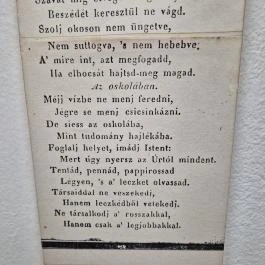 Beszédét keresztűl ne vágd.
Szólj okoson nem üngetve,
Nem suttogva, 's nem hebehve,
A' mire int, azt megfogadd,
Ha elhocsát hajtsd-meg magad.
Az oskolában.
Méjj vizbe ne menj feredni,
Jégre se menj csicsinkázni.
De siess az oskolába,
Mint tudomány hajlékába.
Foglalj helyet, imádj Istent:
Mert úgy nyersz az Úrtól mindent.
Tentád, pennád, pappirossad
Légyen, 's a' leczket olvassad.
Társaiddal ne veszekedj,
Hanem leczkédből vetekedj.
Ne társalkodj a' rosszakkal,
Hanem csak a' legjobbakkal.